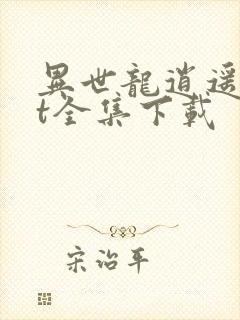 異世龍逍遥
t全集下載
宋治平